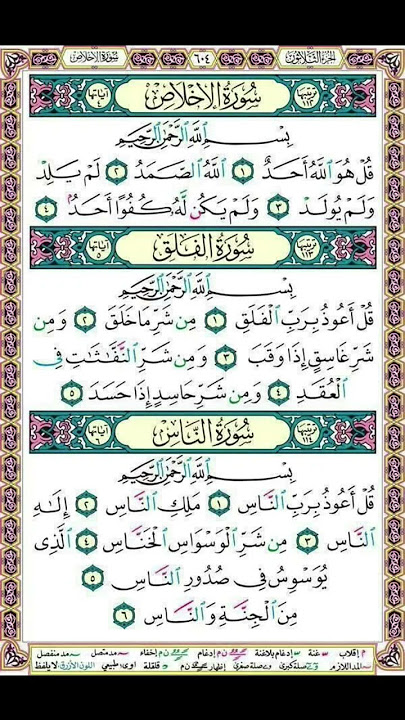 الجزء الثلاثون ٦٠٤ سورة الإخلاص
ترتيبها ١١٢ سُورَةُ الإِخْلَاصِ آياتها ٤
بِسْمِ اللَّهِ الرَّحْمَٰنِ الرَّحِيمِ
قُلْ هُوَ ٱللَّهُ أَحَدٌ ١ ٱللَّهُ ٱلصَّمَدُ ٢ لَمْ يَلِدْ
وَلَمْ يُولَدْ ٣ وَلَمْ يَكُن لَّهُۥ كُفُوًا أَحَدٌۢ ٤
ترتيبها ١١٣ سُورَةُ الفَلَقِ آياتها ٥
بِسْمِ اللَّهِ الرَّحْمَٰنِ الرَّحِيمِ
قُلْ أَعُوذُ بِرَبِّ ٱلْفَلَقِ ١ مِن شَرِّ مَا خَلَقَ ٢ وَمِن
شَرِّ غَاسِقٍ إِذَا وَقَبَ ٣ وَمِن شَرِّ ٱلنَّفَّٰثَٰتِ فِى
ٱلْعُقَدِ ٤ وَمِن شَرِّ حَاسِدٍ إِذَا حَسَدَ ٥
ترتيبها ١١٤ سُورَةُ النَّاسِ آياتها ٦
بِسْمِ اللَّهِ الرَّحْمَٰنِ الرَّحِيمِ
قُلْ أَعُوذُ بِرَبِّ ٱلنَّاسِ ١ مَلِكِ ٱلنَّاسِ ٢ إِلَٰهِ
ٱلنَّاسِ ٣ مِن شَرِّ ٱلْوَسْوَاسِ ٱلْخَنَّاسِ ٤ ٱلَّذِى
يُوَسْوِسُ فِى صُدُورِ ٱلنَّاسِ ٥
مِنَ ٱلْجِنَّةِ وَٱلنَّاسِ ٦
م إقلاب غنة إدغام بلاغنة ن م إدغام ن م إخفاء مد متصل مد منفصل
المد اللازم صلة كبرى صلة صغرى إظهار ن م قلقلة اوى: طبيعي اللون الأزرق: لا يلفظ